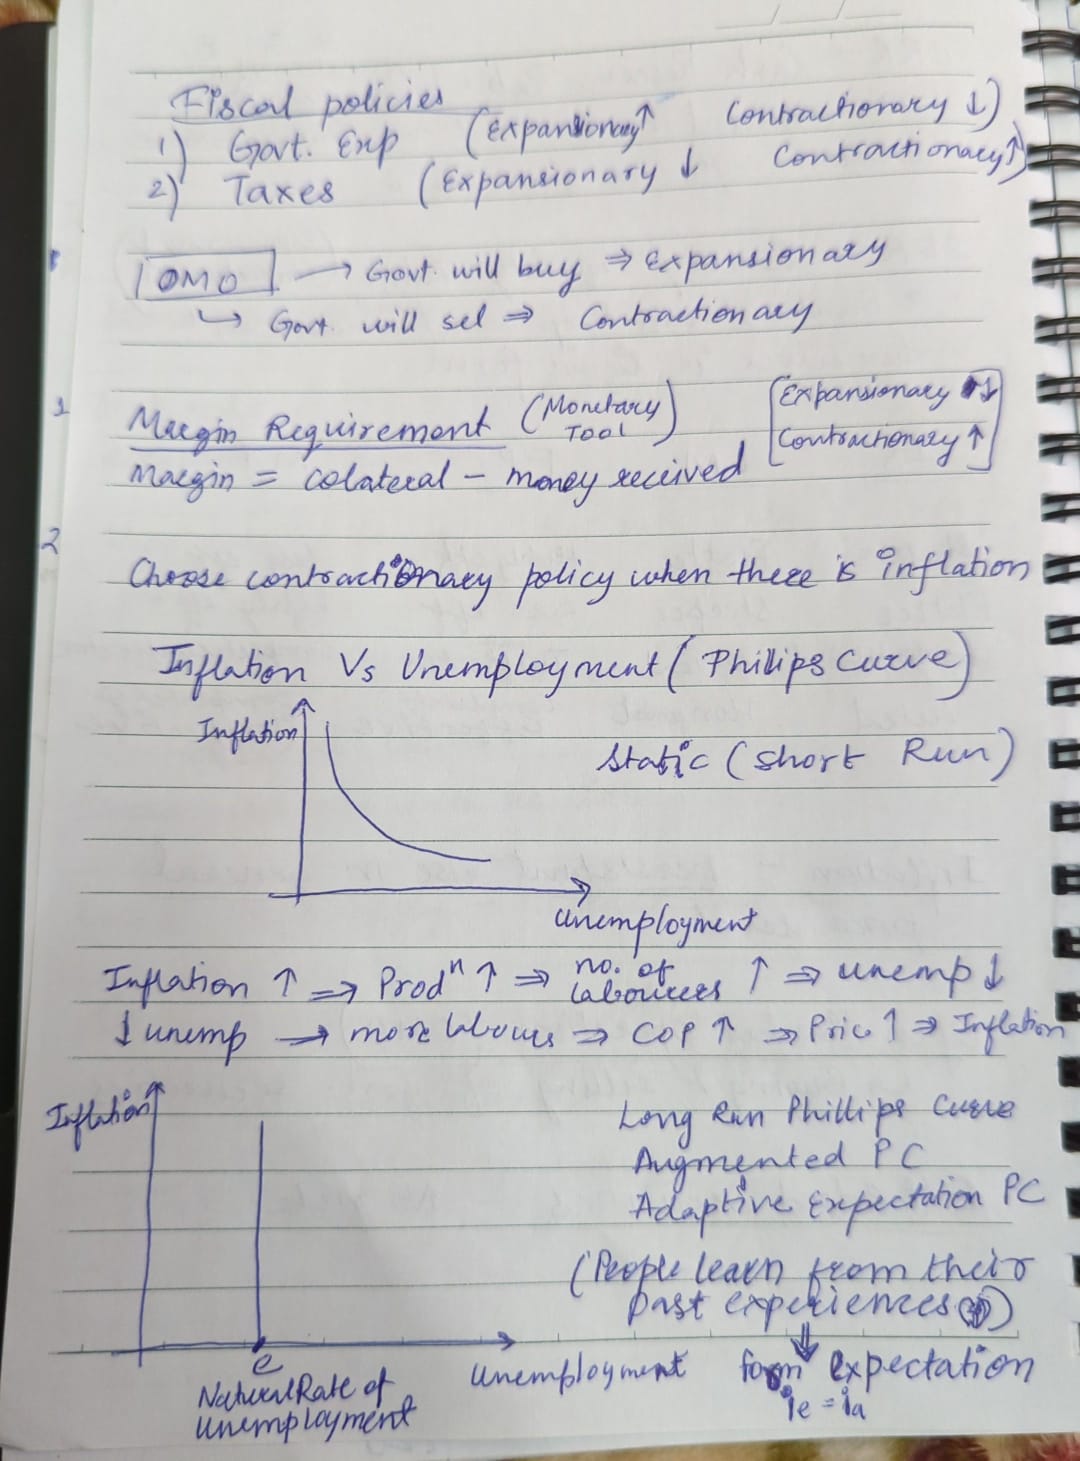 Fiscal policies
1) Govt. Exp (Expansionary↑ Contractionary ↓)
2) Taxes (Expansionary ↓ Contractionary↑)
OMO → Govt. will buy ⇒ Expansionary
↳ Govt. will sel ⇒ Contractionary
1
Margin Requirement (Monetary Tool) [Expansionary ↓
Contractionary ↑]
Margin = colateral - money received
2
Choose contractionary policy when there is inflation
Inflation Vs Unemployment (Phillips Curve)
Inflation
Static (Short Run)
Unemployment
Inflation ↑ ⇒ Prodⁿ ↑ ⇒ no. of labourers ↑ ⇒ unemp ↓
↓ unemp → more labours ⇒ COP ↑ ⇒ Price ↑ ⇒ Inflation
Inflation
Long Run Phillips Curve
Augmented PC
Adaptive Expectation PC
(People learn from their
past experiences)
⇓
e
Unemployment
form Expectation
Natural Rate of
Unemployment
ie = ia